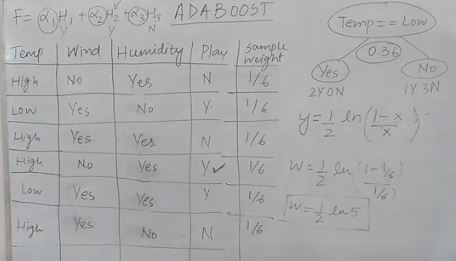 F= α₁H₁ + α₂H₂ + α₃H₃ ADABOOST
Y Y N
Temp Wind Humidity Play Sample weight
High No Yes N 1/6
Low Yes No Y 1/6
High Yes Yes N 1/6
High No Yes Y ✓ 1/6
Low Yes Yes Y 1/6
High Yes No N 1/6
Temp == Low
0.36
Yes No
2Y0N 1Y 3N
y = 1/2 ln (1-x/x)
W = 1/2 ln (1-1/6 / 1/6)
W = 1/2 ln 5